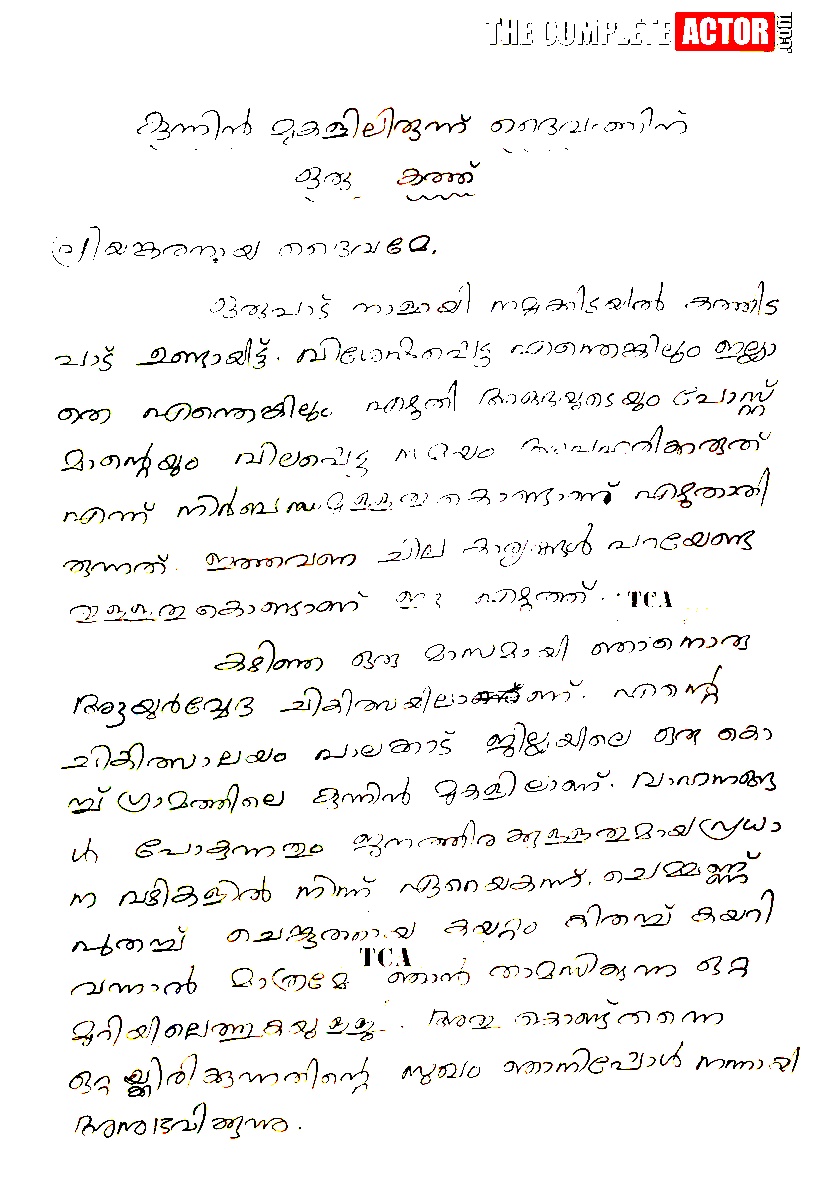 THE COMPLETE ACTOR
കുന്നിൻ മുകളിലിരുന്ന് ദൈവത്തിന്
ഒരു കത്ത്
പ്രിയങ്കരനായ ദൈവമേ.
ഒരുപാട് നാളായി നമുക്കിടയിൽ കത്തിട
പാട് ഉണ്ടായിട്ട്. വിശേഷപ്പെട്ട എന്തെങ്കിലും ഇല്ലാ
തെ എന്തെങ്കിലും എഴുതി അങ്ങയുടെയും പോസ്റ്റ്
മാന്റെയും വിലപ്പെട്ട സമയം അപഹരിക്കരുത്
എന്ന് നിർബന്ധമുള്ളതുകൊണ്ടാണ് എഴുതാതി
രുന്നത്. ഇത്തവണ ചില കാര്യങ്ങൾ പറയേണ്ട
തുള്ളതുകൊണ്ടാണ് ഈ എഴുത്ത്. TCA
കഴിഞ്ഞ ഒരു മാസമായി ഞാനൊരു
ആയുർവ്വേദ ചികിത്സയിലാണ്. എന്റെ
ചികിത്സാലയം പാലക്കാട് ജില്ലയിലെ ഒരു കൊ
ച്ച് ഗ്രാമത്തിലെ കുന്നിൻ മുകളിലാണ്. വാഹനങ്ങ
ൾ പോകുന്നതും ജനത്തിരക്കുള്ളതുമായ പ്രധാ
ന വഴികളിൽ നിന്ന് ഏറെയകന്ന്. ചെമ്മണ്ണ്
പുതച്ച് ചെങ്കുത്തായ കയറ്റം കിതച്ച് കയറി
വന്നാൽ മാത്രമേ TCA ഞാൻ താമസിക്കുന്ന ഒറ്റ
മുറിയിലെത്തുകയുള്ളൂ. അതു കൊണ്ട് തന്നെ
ഒറ്റയ്ക്കിരിക്കുന്നതിന്റെ സുഖം ഞാനിപ്പോൾ നന്നായി
അനുഭവിക്കുന്നു.